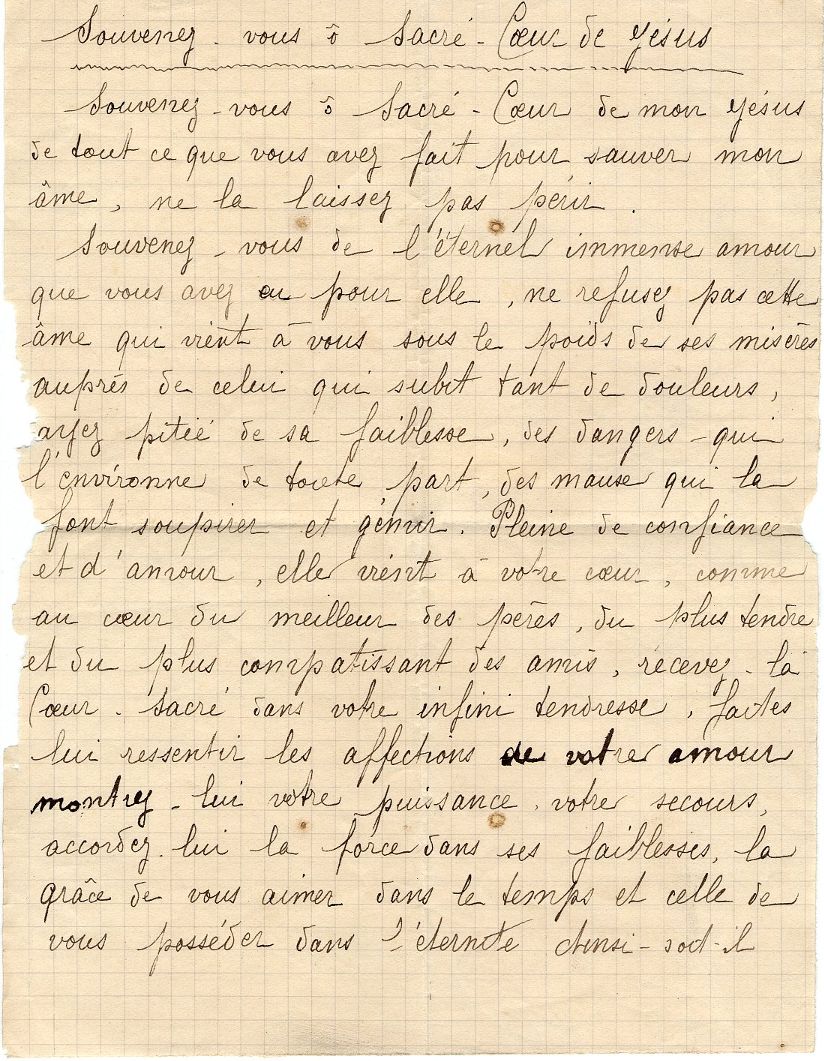 Souvenez-vous ô Sacré-Cœur de Jésus
Souvenez-vous ô Sacré-Cœur de mon Jésus
de tout ce que vous avez fait pour sauver mon
âme, ne la laissez pas périr.
Souvenez-vous de l'éternel immense amour
que vous avez eu pour elle, ne refusez pas cette
âme qui vient à vous sous le poids de ses misères
auprés de celui qui subit tant de douleurs,
ayez pitié de sa faiblesse, des dangers-qui
l'environne de toute part, des mause qui la
font soupirer et gémir. Pleine de confiance
et d'amour, elle vient à votre cœur, comme
au cœur du meilleur des pères, du plus tendre
et du plus compatissant des amis, recevez-la
Cœur-Sacré dans votre infini tendresse, faites
lui ressentir les affections de votre amour
montrez-lui votre puissance, votre secours,
accordez-lui la force dans ses faiblesses, la
grâce de vous aimer dans le temps et celle de
vous posséder dans l'éternité Ainsi-soit-il